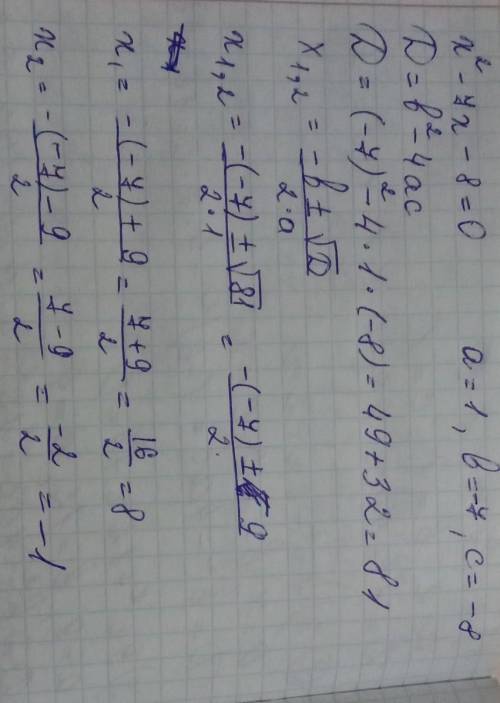 x² - 7x - 8 = 0   a = 1, b = -7, c = -8
D = b² - 4ac
D = (-7)² - 4 · 1 · (-8) = 49 + 32 = 81
x₁,₂ = (-b ± √D) / (2 · a)
x₁,₂ = (-(-7) ± √81) / (2 · 1) = (-(-7) ± 9) / 2
x₁ = (-(-7) + 9) / 2 = (7 + 9) / 2 = 16 / 2 = 8
x₂ = (-(-7) - 9) / 2 = (7 - 9) / 2 = -2 / 2 = -1